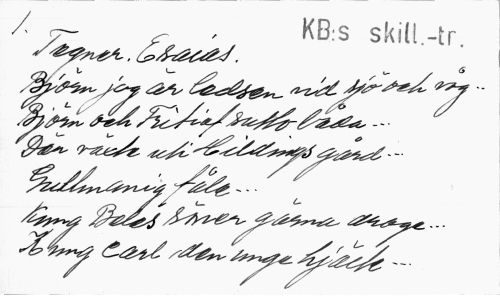 1.
KB:s skill.-tr.
Tegner. Esaias.
Björn jag är ledsen vid sjö och våg..
Björn och Fritiof sutto båda...
Där växte uti Hildings gård...
Gullmanig fåle...
Kung Beles söner gärna droge...
Kung Carl den unge hjälte...